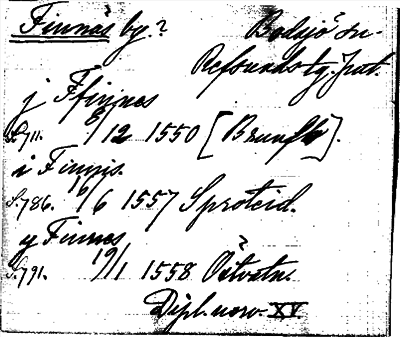 Finnäs by? Bodsjö sn.
Refsunds tg. Jmt.
j Ffinnes
S. 711. 8/12 1550 [Brunflo].
i Finnis.
S. 786. 16/6 1557 Sproteid.
y Finnes
S. 791. 19/1 1558
Dipl. norv. XV.